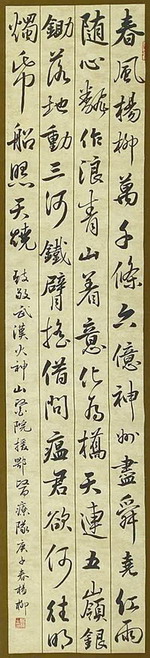 春風楊柳萬千條六億神州盡舜堯紅雨
隨心翻作浪青山着意化為橋天連五嶺銀
鋤落地動三河鐵臂搖借問瘟君欲何往明
燭帋船照天燒
致敬武漢火神山醫院援鄂醫療隊 庚子春楊柳